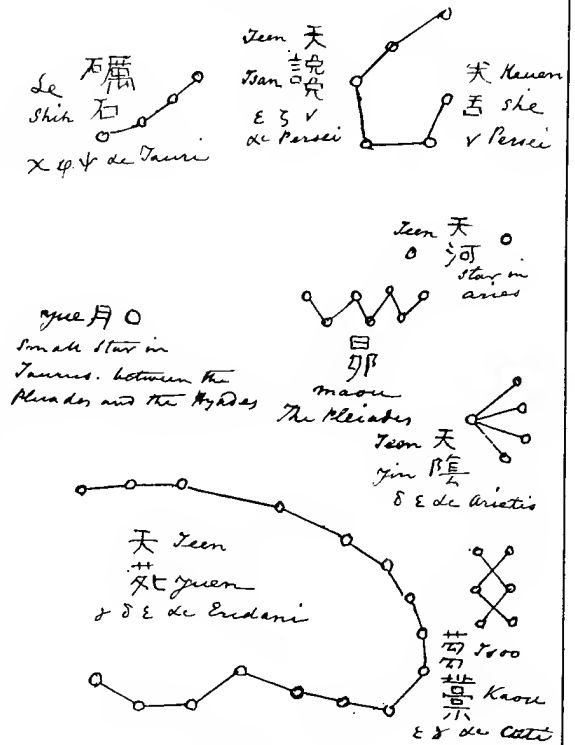 Le 礪
Shih 石
χ φ ψ &c Tauri
Teen 天
Tsan 讒
ε ζ ν
&c Persei
Keuen
She 舌
ν Persei
Teen 天
河
Star in
aries
yue 月
Small Star in
Taurus. between the
Pleiades and the Hyades
昴
maou
The Pleiades
Teen 天
Yin 陰
δ ε &c Arietis
天 Teen
苑 Yuen
γ δ ε &c Eridani
芻 Tsoo
藁 Kaou
ε γ &c Ceti